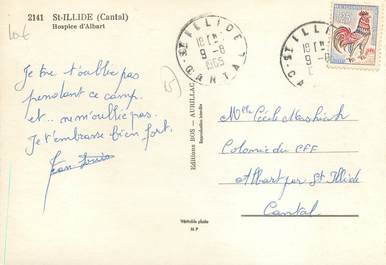 2141 St-ILLIDE (Cantal)
Hospice d'Albart
St ILLIDE
18H
9-8
1965
CANTAL
St ILLIDE
18H
9-8
Je ne t'oublie pas
pendant ce camp.
et.. ne m'oublie pas.
Je t'embrasse bien fort.
Editions BOS - AURILLAC
Reproduction interdite
Mlle Cécile
Colonie du CFF
Albart par St Illide
Cantal
Véritable photo
M P